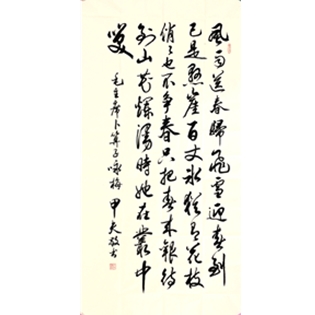 風雨送春歸飛雪迎春到
已是懸崖百丈冰猶有花枝
俏〻也不争春只把春来報待
到山花爛漫時她在叢中
笑
毛主席卜算子咏梅